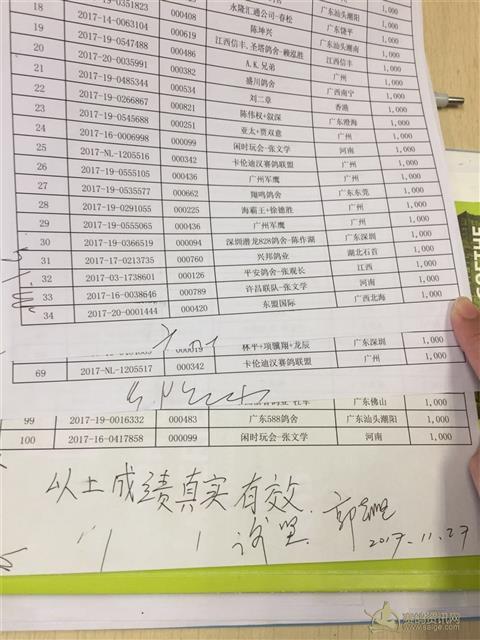 2017-19-0351823 000408 陈坤兴 广东饶平 1,000
18 2017-14-0063104 000619 江西信丰.圣塔鸽舍-赖泓胜 江西信丰 1,000
19 2017-19-0547488 000486 A.K.兄弟 广州 1,000
20 2017-20-0035991 000382 盛川鸽舍 广西南宁 1,000
21 2017-19-0485344 000534 刘二章 香港 1,000
22 2017-19-0266867 000821 陈伟权+叙深 广东澄海 1,000
23 2017-19-0545688 000251 亚太+贾双意 广州 1,000
24 2017-16-0006998 000099 闲时玩会-张文学 河南 1,000
25 2017-NL-1205516 000342 卡伦迪汉赛鸽联盟 广州 1,000
26 2017-19-0555105 000436 广州军鹰 广州 1,000
27 2017-19-0535577 000662 翔鸣鸽舍 广东东莞 1,000
28 2017-19-0291055 000225 海霸王+徐德胜 广州 1,000
29 2017-19-0555065 000436 广州军鹰 广州 1,000
30 2017-19-0366519 000094 深圳潜龙828鸽舍-陈作湖 广东深圳 1,000
31 2017-17-0213735 000760 兴邦鸽业 湖北石首 1,000
32 2017-03-1738601 000126 平安鸽舍-张观长 江西 1,000
33 2017-16-0038646 000789 许昌联队-张文学 河南 1,000
34 2017-20-0001444 000420 东盟国际 广西北海 1,000
000019 林平+项骥翔+龙辰 广东深圳 1,000
69 2017-NL-1205517 000342 卡伦迪汉赛鸽联盟 广州 1,000
广东佛山 1,000
99 2017-19-0016332 000483 广东588鸽舍 广东汕头潮阳 1,000
100 2017-16-0417858 000099 闲时玩会-张文学 河南 1,000
以上成绩真实有效.
2017.11.27
赛鸽资讯网
www.saige.com